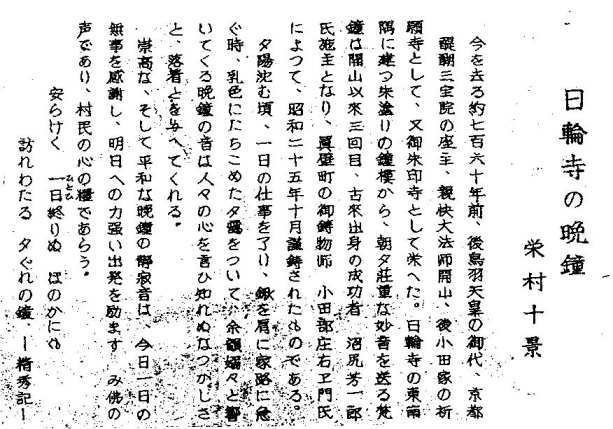 日輪寺の晩鐘
栄村十景
今を去る約七百六十年前、後鳥羽天皇の御代、京都
醍醐三宝院の座主、親快大法師開山、後小田家の祈
願寺として、又御朱印寺として栄へた。日輪寺の東南
隅に建つ朱塗りの鐘楼から、朝夕荘重な妙音を送る梵
鐘は開山以来三回目、古来出身の成功者 沼尻芳一郎
氏施主となり、眞壁町の御鋳物師 小田部庄右ヱ門氏
によつて、昭和二十五年十月謹鋳されたものである。
夕陽沈む頃、一日の仕事を了り、鍬を肩に家路に急
ぐ時、乳色にたちこめた夕靄をついて、余韻嫋々と響
いてくる晩鐘の音は人々の心を言ひ知れぬなつかしさ
と、落着とを与へてくれる。
崇高な、そして平和な晩鐘の静寂音は、今日一日の
無事を感謝し、明日への力強い出発を励ます み佛の
声であり、村民の心の糧であらう。
安らけく 一日終りぬ ほのかにも
ひとひ
訪れわたる 夕ぐれの鐘、ー精秀記ー